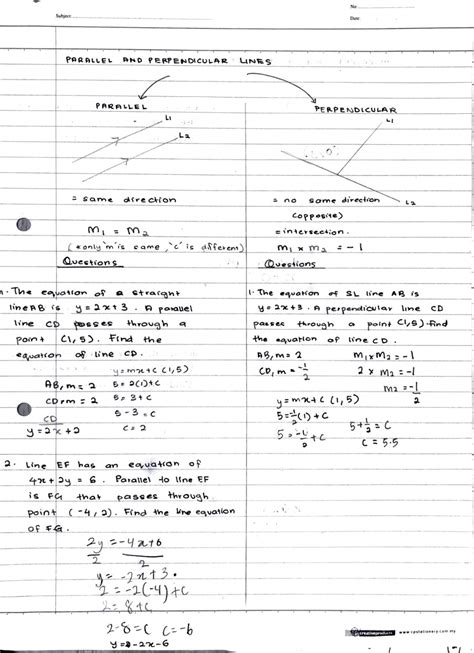 No:
Subject:
Date:
PARALLEL AND PERPENDICULAR LINES
PARALLEL
L1
L2
= same direction
m₁ = m₂
(*only 'm' is same, 'c' is different)
Questions
1. The equation of a straight
line AB is y = 2x+3. A parallel
line CD passes through a
point (1,5). Find the
equation of line CD.
y=mx+c (1,5)
AB, m = 2
5 = 2(1)+c
CD, m = 2
5 = 2+c
5-3 = c
CD
y = 2x+2
c = 2
2. Line EF has an equation of
4x + 2y = 6. Parallel to line EF
is FG that passes through
point (-4, 2). Find the line equation
of FG.
2y = -4x+6
2 2
y = -2x+3.
2 = -2(-4)+c
2 = 8+c
2-8 = c c = -6
y = -2x-6
PERPENDICULAR
L1
L2
= no same direction
(opposite)
= intersection.
m₁ x m₂ = -1
Questions
1. The equation of SL line AB is
y = 2x+3. A perpendicular line CD
passes through a point (1,5) find
the equation of line CD.
AB, m = 2
m₁xm₂ = -1
CD, m = -1/2
2 x m₂ = -1
m₂ = -1/2
y = mx+c (1,5)
5 = -1/2(1)+c
5+1/2 = c
5 = -1/2+c
c = 5.5
www.cpstationery.com.my